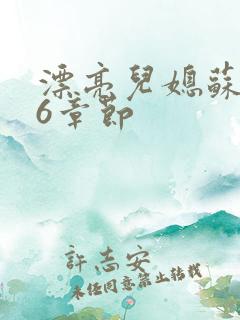 漂亮兒媳蘇
6章節
許志安
未經同意禁止轉載